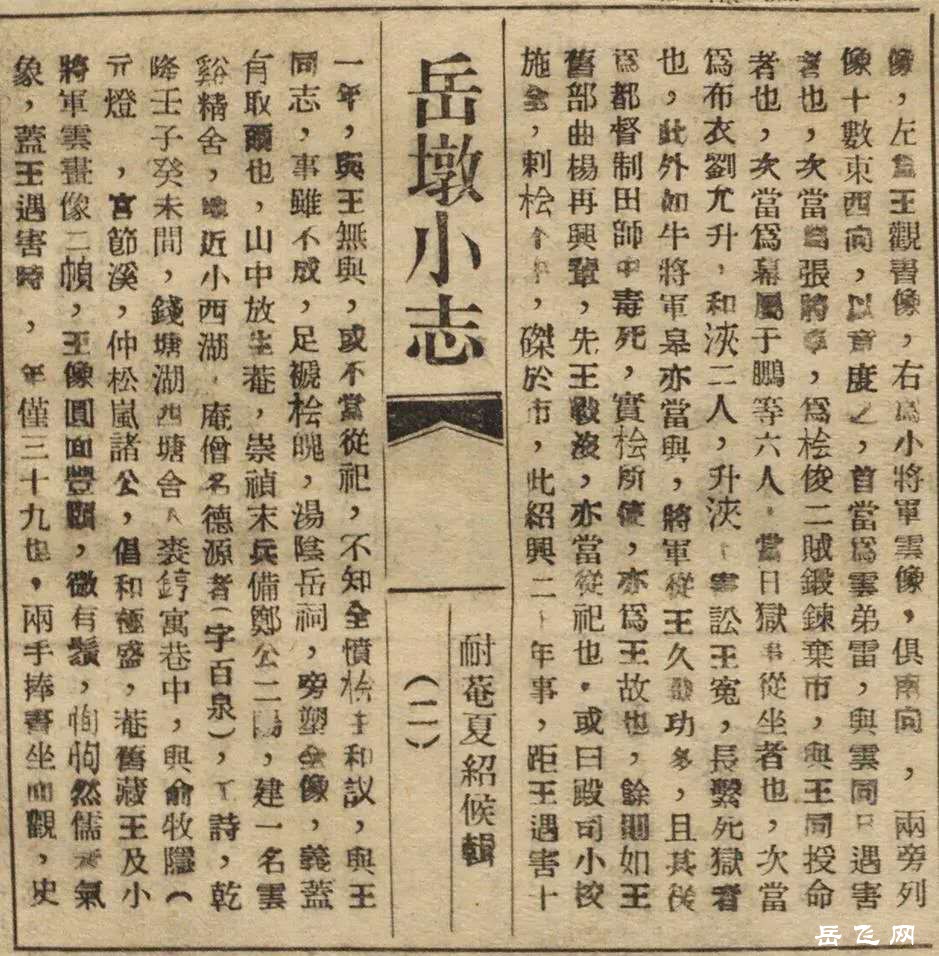 像，左 王觀書像，右爲小將軍雲像，俱南向，兩旁列
像十數東西向，以意度之，首當爲雲弟雷，與雲同日遇害
者也，次當爲張將 ，爲桧俊二賊鍛鍊棄市，與王同授命
者也，次當爲幕屬于鵬等六人，當日獄事從坐者也，次當
爲布衣劉允升，和浹二人，升浹 訟王冤，長繫死獄者
也，此外如牛將軍皋亦當與，將軍從王久 功多，且其後
爲都督制田師中毒死，實桧所使，亦爲王故也，餘則如王
舊部曲楊再興輩，先王戰沒，亦當從祀也。或曰殿司小校
施全，刺桧 ，磔於市，此紹興二十年事，距王遇害十
岳墩小志
耐菴夏紹候輯
（二）
一年，與王無與，或不當從祀，不知全憤桧主和議，與王
同志，事雖不成，足褫桧魄，湯陰岳祠，旁塑全像，義蓋
有取爾也，山中放生菴，崇禎末兵備鄭公二陽，建一名雲
谿精舍，地近小西湖，庵僧名德源者（字百泉），工詩，乾
隆壬子癸未間，錢塘湖西塘舍人裘錞寓巷中，與俞牧隱（
元燈 ，宮節溪，仲松嵐諸公，倡和極盛，菴舊藏王及小
將軍雲畫像二幀，王像圓面豐頤，微有鬚，恂恂然儒 氣
象，蓋王遇害時，年僅三十九也，兩手捧書坐而觀，史
岳飞网